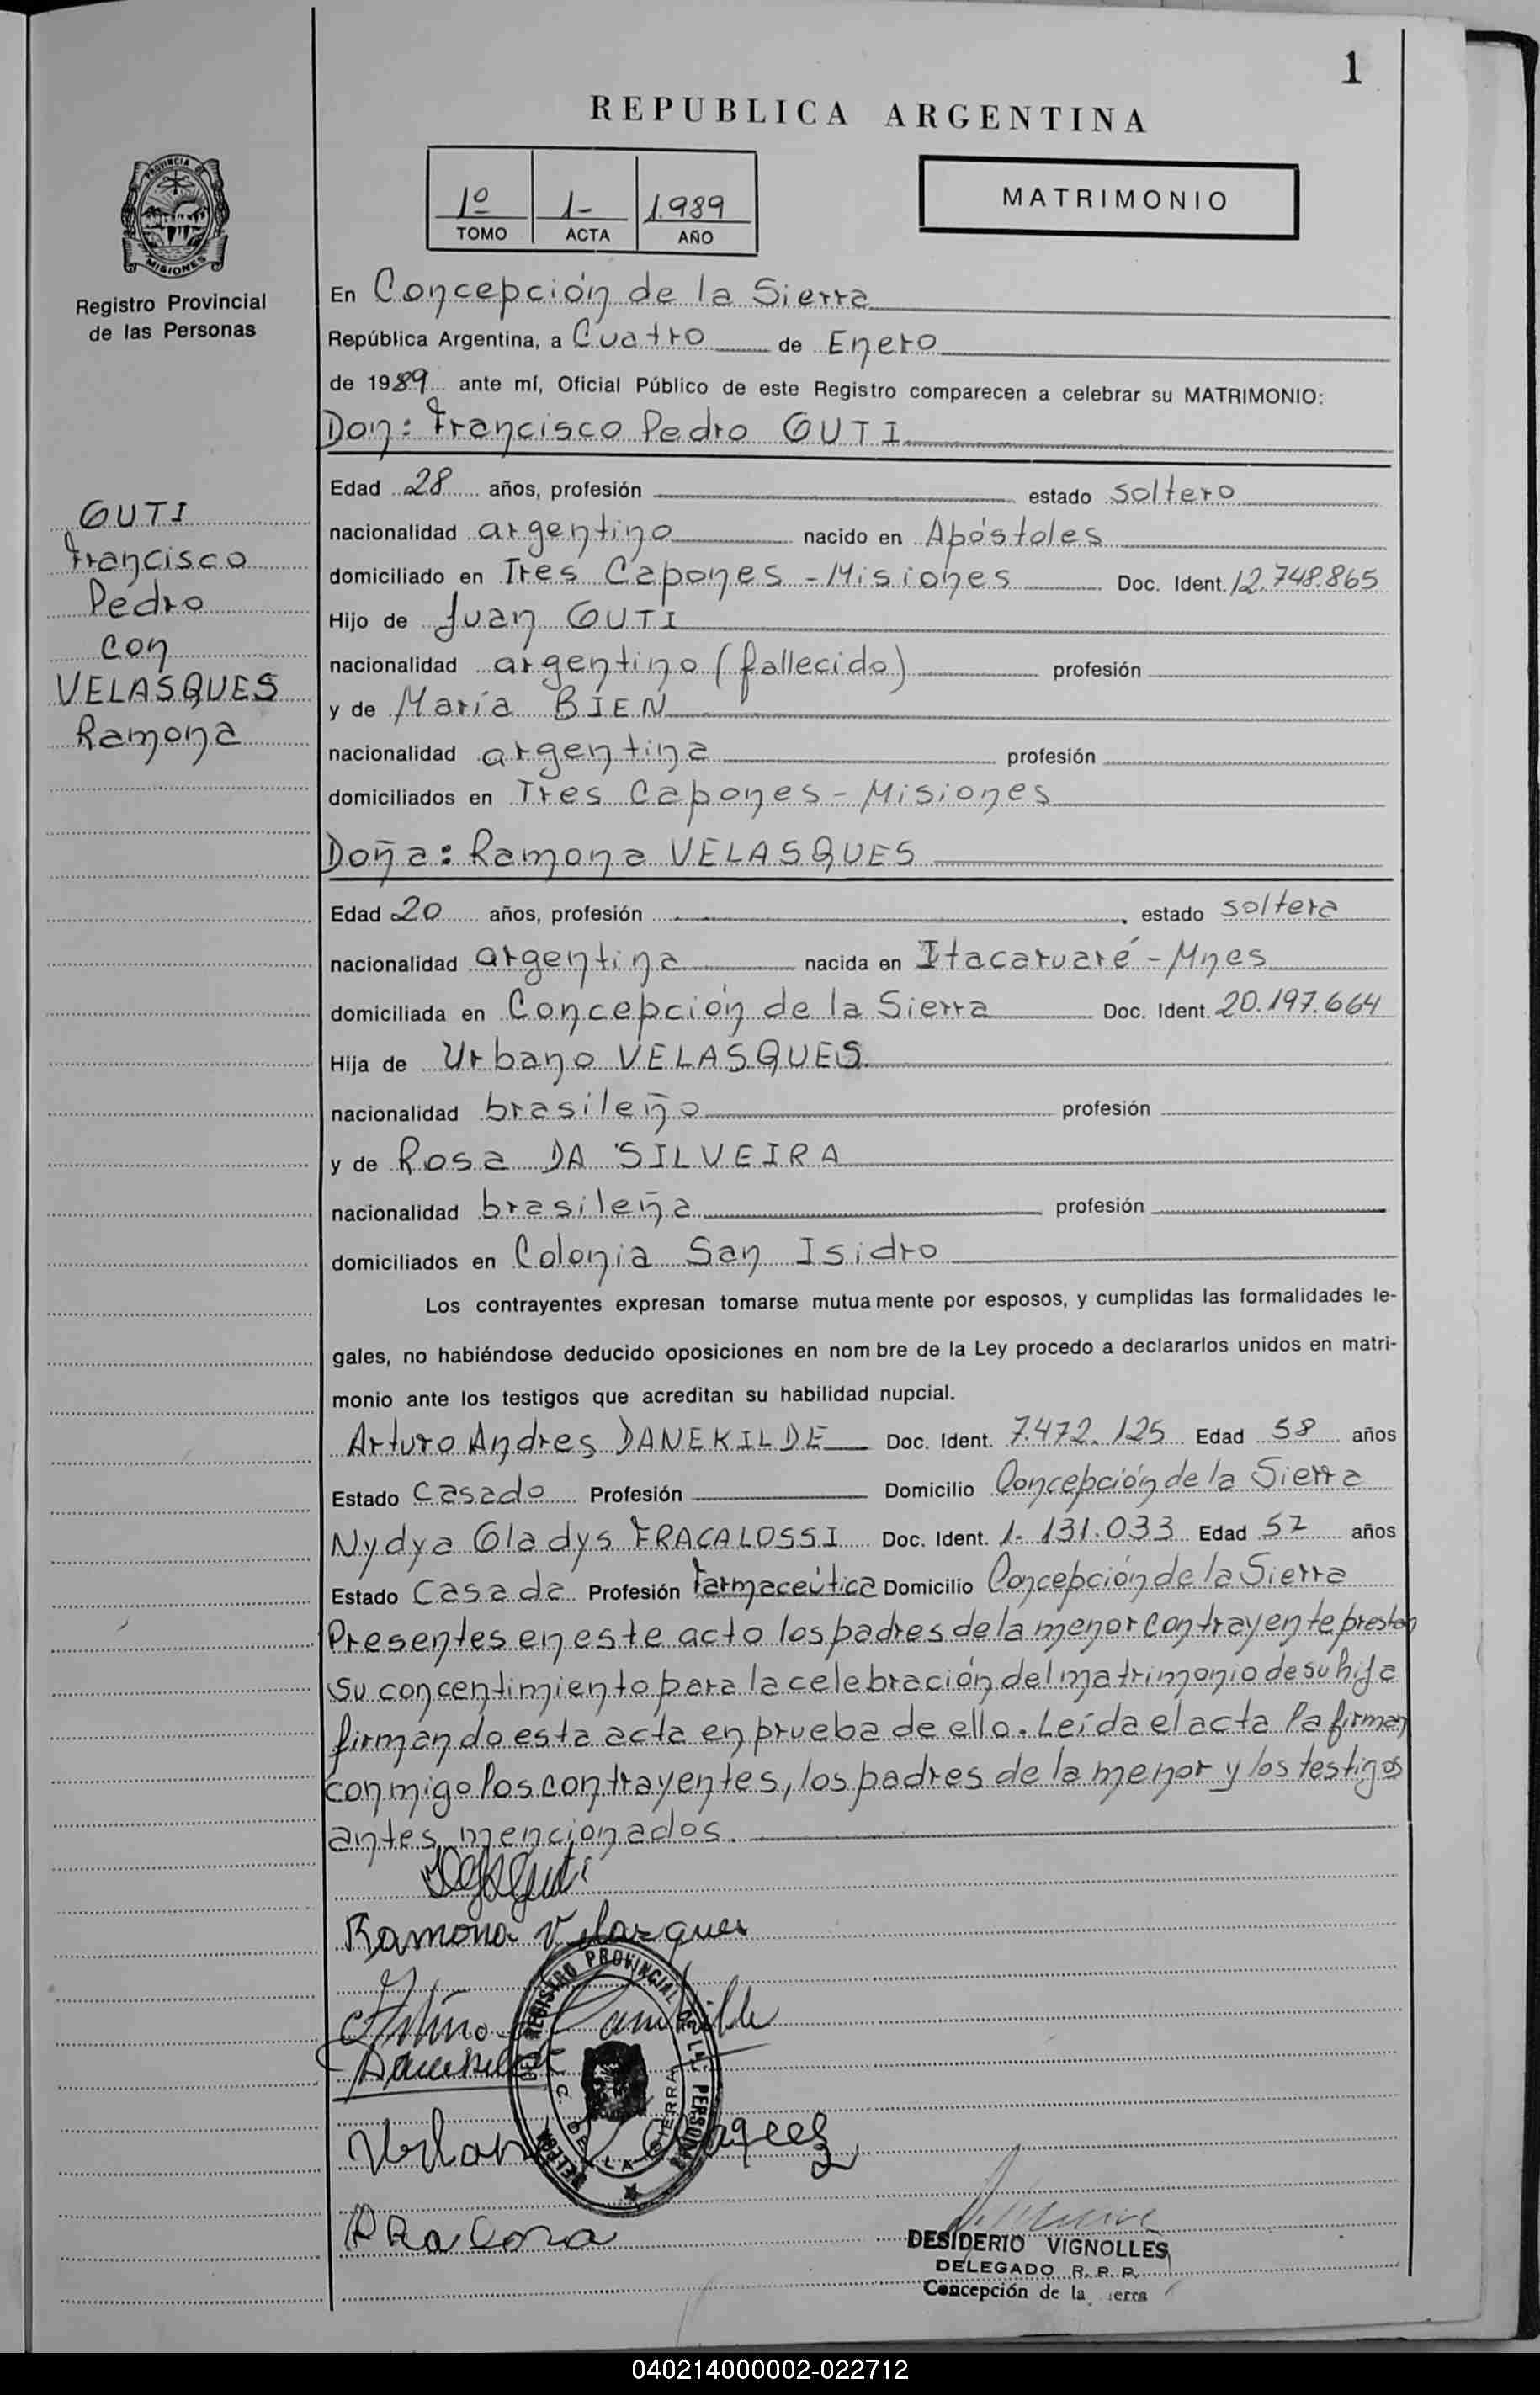 1
REPUBLICA ARGENTINA
1º 1- 1.989
TOMO ACTA AÑO
MATRIMONIO
PROVINCIA DE
MISIONES
Registro Provincial
de las Personas
GUTI
Francisco
Pedro
con
VELASQUES
Ramona
En Concepción de la Sierra
República Argentina, a Cuatro de Enero
de 1989 ante mí, Oficial Público de este Registro comparecen a celebrar su MATRIMONIO:
Don: Francisco Pedro GUTI
Edad 28 años, profesión estado soltero
nacionalidad argentino nacido en Apóstoles
domiciliado en Tres Capones - Misiones Doc. Ident. 12.748.865
Hijo de Juan GUTI
nacionalidad argentino (fallecido) profesión
y de María BIEN
nacionalidad argentina profesión
domiciliados en Tres Capones - Misiones
Doña: Ramona VELASQUES
Edad 20 años, profesión estado soltera
nacionalidad argentina nacida en Itacaruaré - Mnes
domiciliada en Concepción de la Sierra Doc. Ident. 20.197.664
Hija de Urbano VELASQUES.
nacionalidad brasileño profesión
y de Rosa DA SILVEIRA
nacionalidad brasileña profesión
domiciliados en Colonia San Isidro
Los contrayentes expresan tomarse mutua mente por esposos, y cumplidas las formalidades le-
gales, no habiéndose deducido oposiciones en nom bre de la Ley procedo a declararlos unidos en matri-
monio ante los testigos que acreditan su habilidad nupcial.
Arturo Andres DANEKILDE Doc. Ident. 7.472.125 Edad 58 años
Estado Casado Profesión Domicilio Concepción de la Sierra
Nydya Gladys FRACALOSSI Doc. Ident. 1.131.033 Edad 57 años
Estado Casada Profesión Farmaceútica Domicilio Concepción de la Sierra
Presentes en este acto los padres de la menor contrayente prestan
su concentimiento para la celebración del matrimonio de su hija
firmando esta acta en prueba de ello. Leída el acta la firman
conmigo los contrayentes, los padres de la menor y los testigos
antes mencionados.
Ramona Velazques
REGISTRO PROVINCIAL DE LAS PERSONAS
C. DE LA SIERRA
DESIDERIO VIGNOLLES
DELEGADO R. P. P.
Concepción de la ierra
040214000002-022712